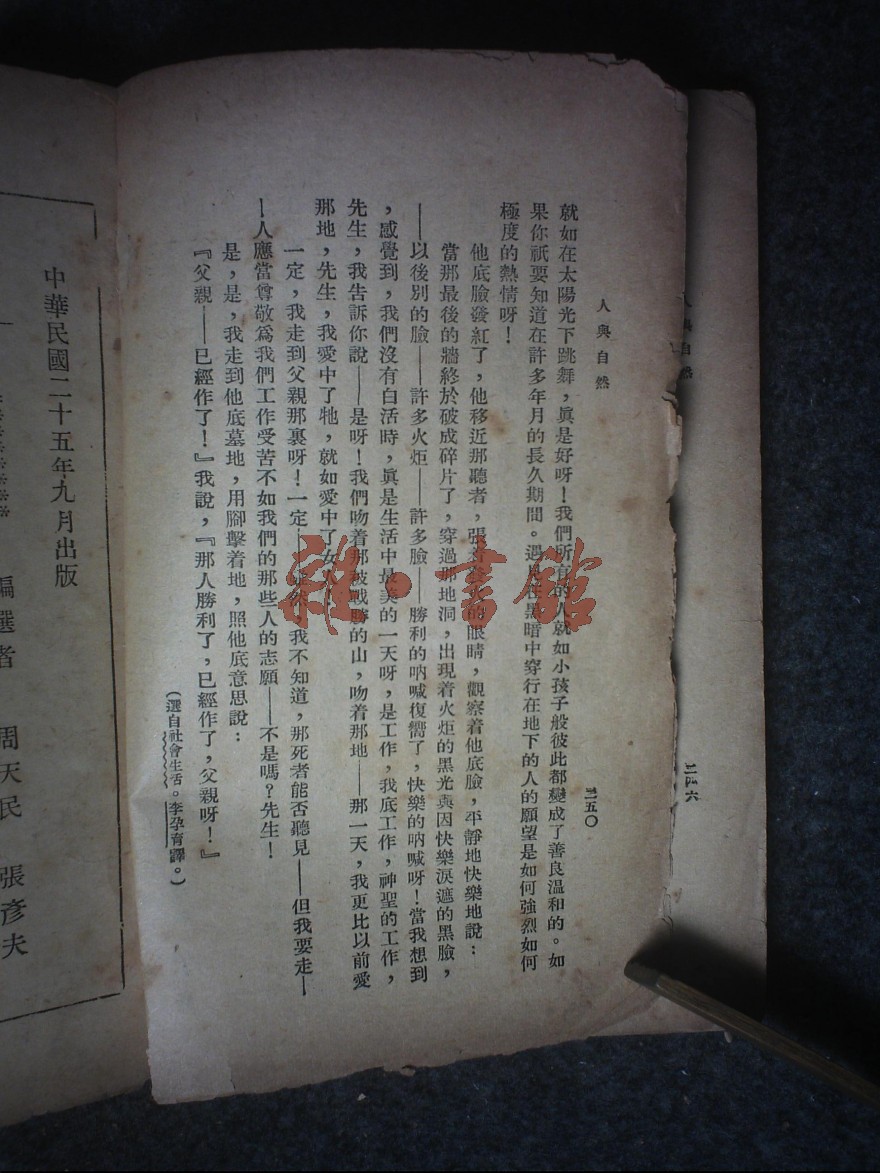 人與自然
二四六
人與自然
二五〇
就如在太陽光下跳舞，眞是好呀！我們所有的人就如小孩子般彼此都變成了善良温和的。如
果你祇要知道在許多年月的長久期間。遇見在黑暗中穿行在地下的人的願望是如何強烈如何
極度的熱情呀！
他底臉發紅了，他移近那聽者，張着 的眼睛，觀察着他底臉，平靜地快樂地說：
當那最後的牆終於破成碎片了，穿過那地洞，出現着火炬的黑光與因快樂淚遮的黑臉，
——以後別的臉——許多火炬——許多臉——勝利的吶喊復嚮了，快樂的吶喊呀！當我想到
，感覺到，我們沒有白活時，眞是生活中最美的一天呀，是工作，我底工作，神聖的工作，
先生，我告訴你說——是呀！我們吻着那被戰勝的山，吻着那地——那一天，我更比以前愛
那地，先生，我愛中了牠，就如愛中了女人
一定，我走到父親那裏呀！一定— 然，我不知道，那死者能否聽見——但我要走—
—人應當尊敬爲我們工作受苦不如我們的那些人的志願——不是嗎？先生！
是，是，我走到他底墓地，用腳擊着地，照他底意思說：
『父親——已經作了！』我說，『那人勝利了，已經作了，父親呀！』
（選自社會生活。李孕育譯。）
雜·書館
中華民國二十五年九月出版
編選者 周天民 張彥夫